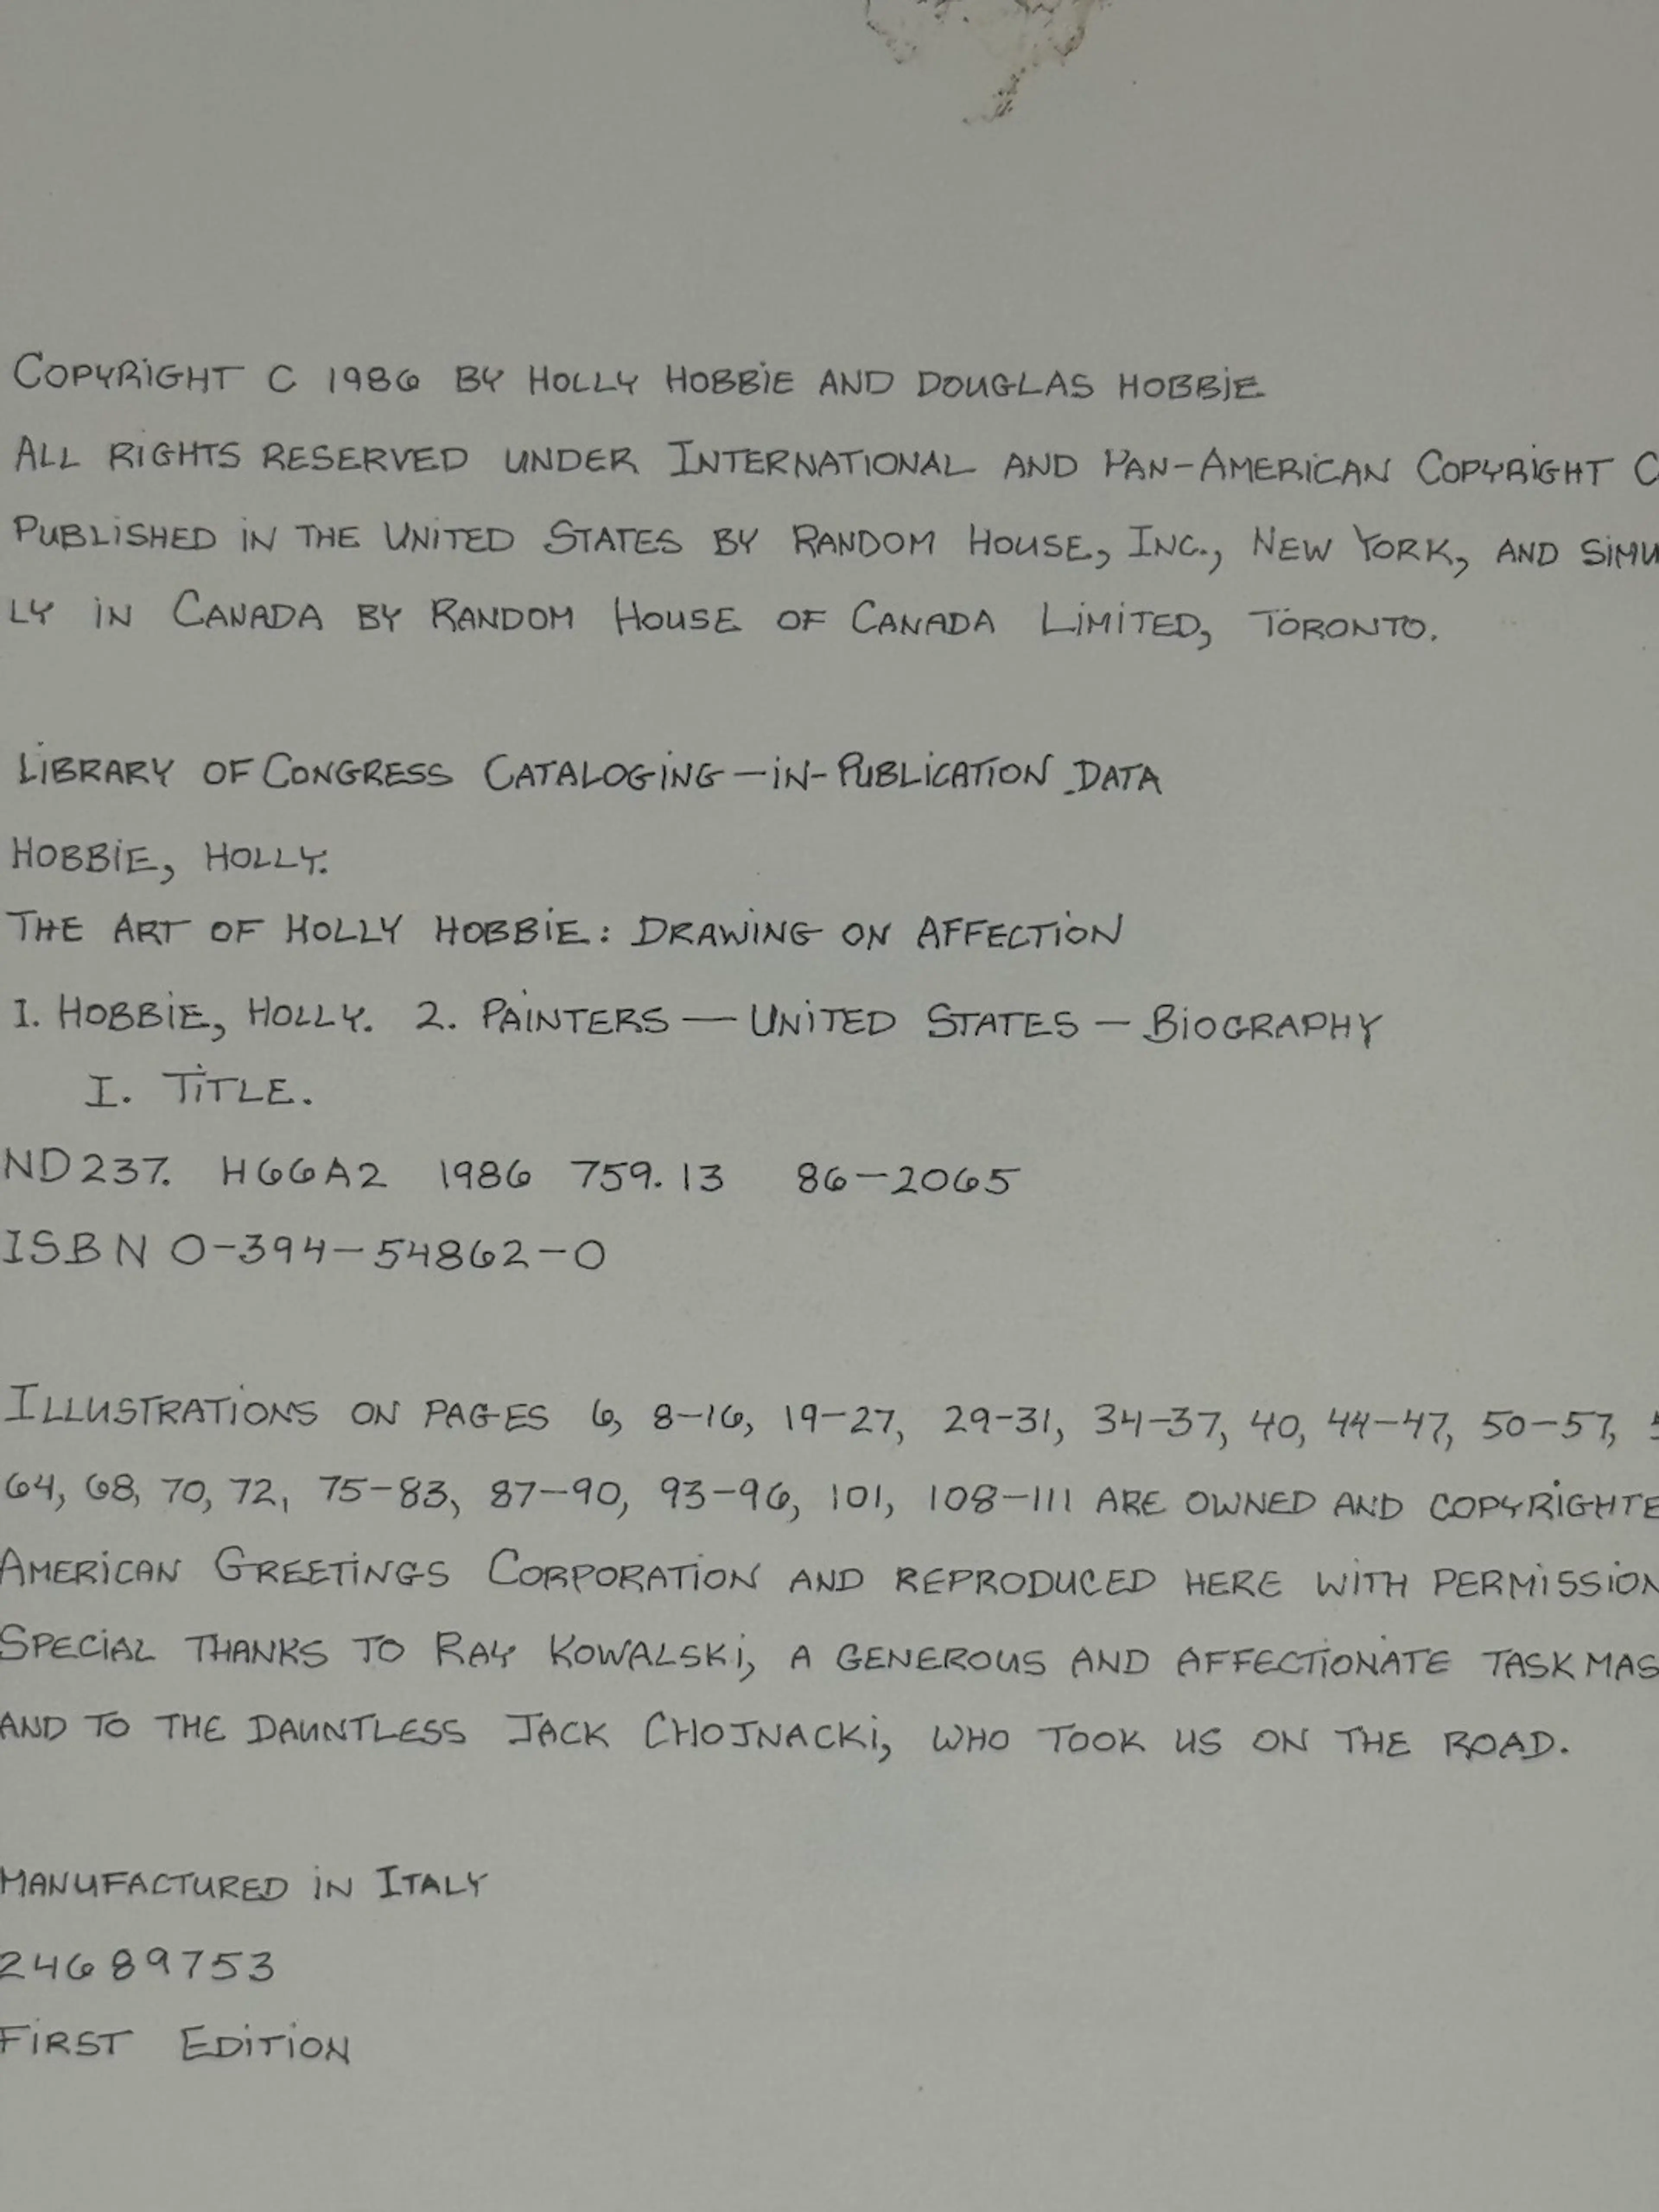 COPYRiGHT C 1986 BY HOLLY HOBBiE AND DOUGLAS HOBBiE
ALL RiGHTS RESERVED UNDER INTERNATIONAL AND PAN-AMERiCAN COPYRiGHT C
PUBLiSHED iN THE UNiTED STATES BY RANDOM HOUSE, INC., NEW YORK, AND SiMU
LY iN CANADA BY RANDOM HOUSE OF CANADA LiMiTED, TORONTO.
LiBRARY OF CONGRESS CATALOGiNG—iN-PUBLiCATiON DATA
HOBBiE, HOLLY.
THE ART OF HOLLY HOBBiE: DRAWiNG ON AFFECTiON
1. HOBBiE, HOLLY. 2. PAiNTERS — UNiTED STATES — BiOGRAPHY
I. TiTLE.
ND237. H66A2 1986 759.13 86-2065
ISBN 0-394-54862-0
ILLUSTRATiONS ON PAGES 6, 8-16, 19-27, 29-31, 34-37, 40, 44-47, 50-57, 5
64, 68, 70, 72, 75-83, 87-90, 93-96, 101, 108-111 ARE OWNED AND COPYRiGHTE
AMERiCAN GREETiNGS CORPORATiON AND REPRODUCED HERE WiTH PERMiSSiON
SPECiAL THANKS TO RAY KOWALSKi, A GENEROUS AND AFFECTiONATE TASKMAS
AND TO THE DAUNTLESS JACK CHOJNACKi, WHO TOOK US ON THE ROAD.
MANUFACTURED iN ITALY
24689753
FiRST EDiTiON